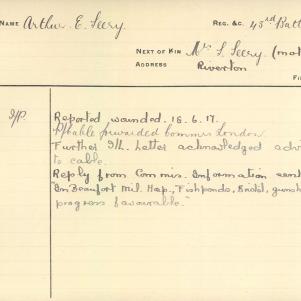 NAME Arthur E. Seery. REG. &C. 43rd Batt
NEXT OF KIN Mrs S. Seery. (mot
ADDRESS Riverton
Reported wounded. 16.6.17.
P/cable forwarded Commis London
Further I/L. Letter acknowledged adv
to cable.
Reply from Commis. Information sent
"In Beaufort Mil. Hosp., Fishponds, Bristol, gunsh
progress favourable."